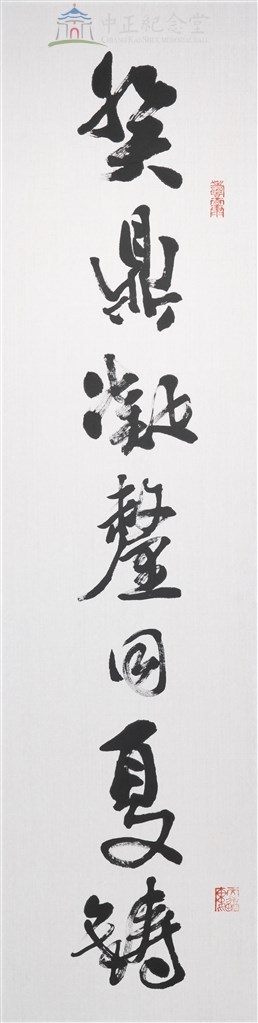 中正紀念堂
癸鼎凝釐同夏鑄